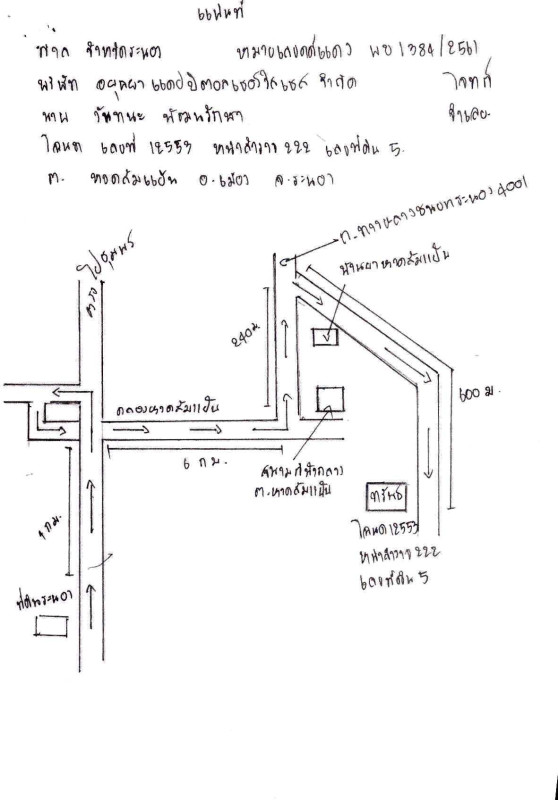 แผนที่
ศาล จังหวัดระนอง หมายเลขคดีแดง ผบ 1384/2561
บริษัท อยุธยา แคปปิตอล เซอร์วิสเซส จำกัด โจทก์
นาย วัฒนะ จำเลย
โฉนด เลขที่ 12553 หน้าสำรวจ 222 เลขที่ดิน 5.
ต. หาดส้มแป้น อ.เมือง จ.ระนอง
ไปชุมพร
ต.ทางหลวงชนบทระนอง 4001
บ้านยาหาดส้มแป้น
240 ม.
600 ม.
คลองหาดส้มแป้น
6 กม.
สนามกีฬากลาง
ต.หาดส้มแป้น
ทรัพย์
โฉนด 12553
หน้าสำรวจ 222
เลขที่ดิน 5
1 กม.
ที่ดินระนอง